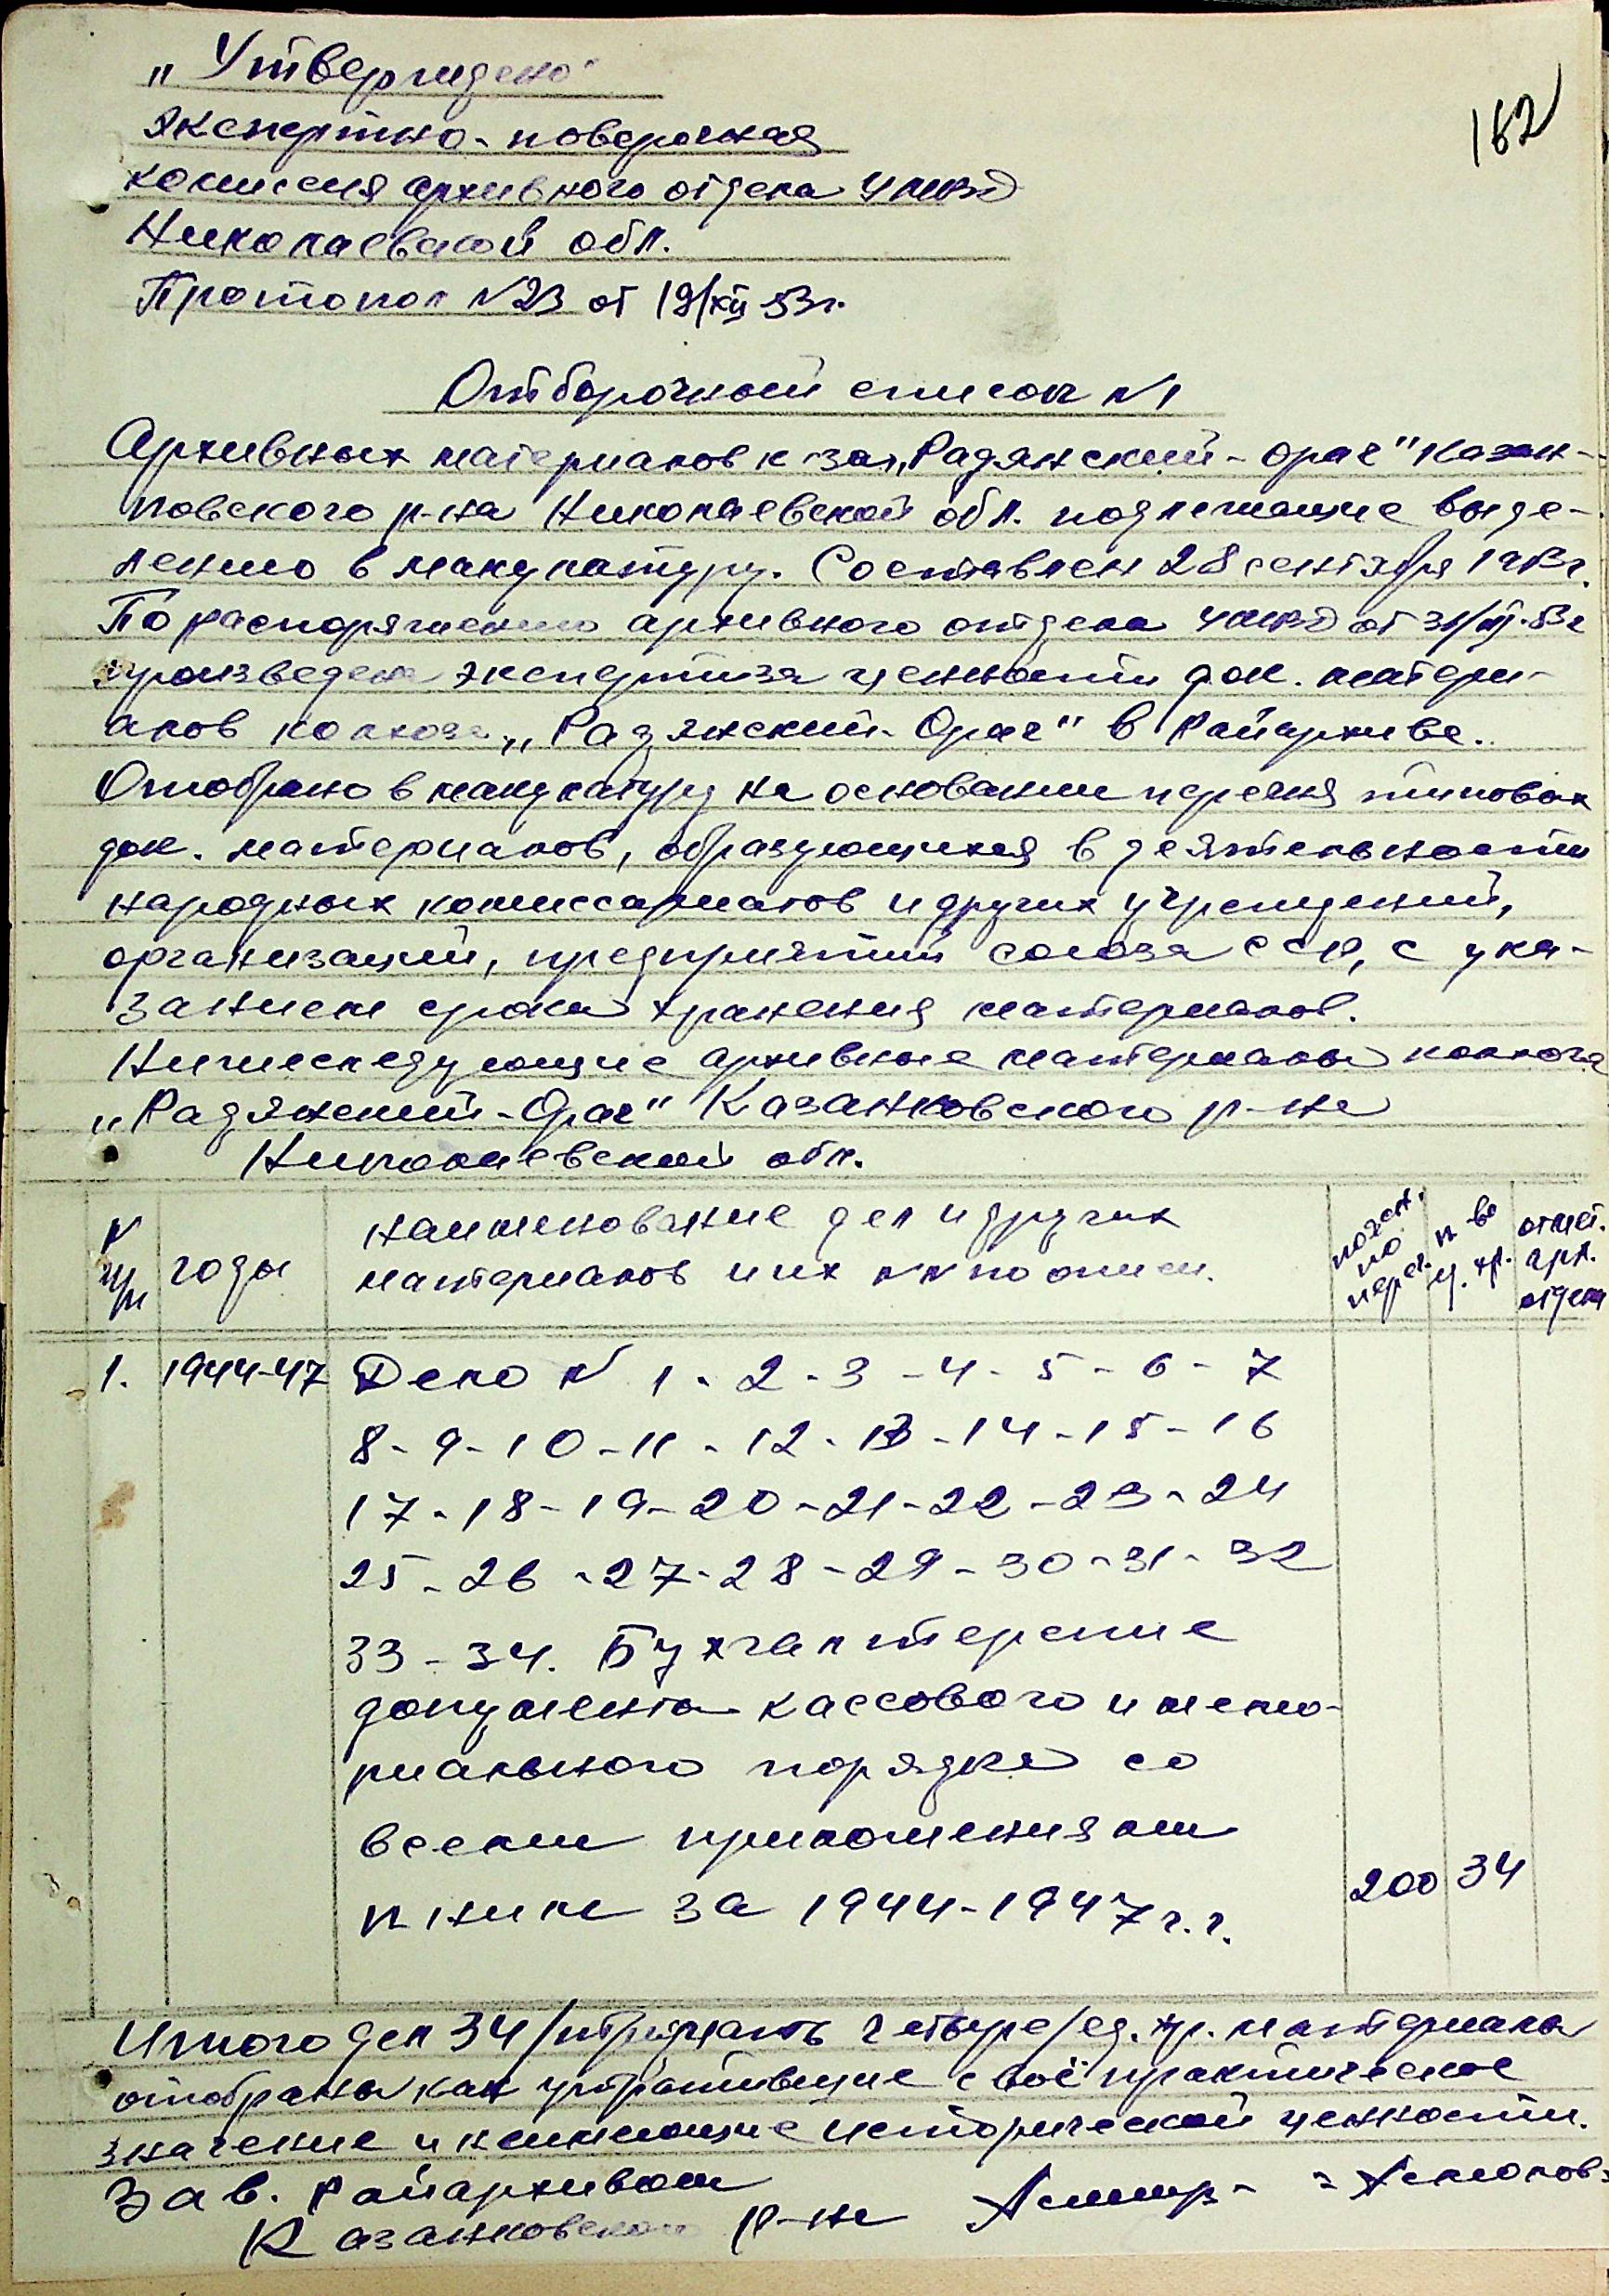 „Утверждено"
162
Экспертно-поверочная
комиссия архивного отдела УМВД
Николаевской обл.
Протокол №23 от 19/XII 53г.
Отборочный список №1
Архивных материалов к-за „Радянский-Орач" Казан-
ковского р-на Николаевской обл. подлежащие выде-
лению в макулатуру. Составлен 28 сентября
По распоряжению архивного отдела УМВД от
произведена экспертиза ценности док. матери-
алов колхоза „Радянский-Орач" в Райархиве.
Отобрано в макулатуру на основании перечня типовых
док. материалов, образующихся в деятельности
народных комиссариатов и других учреждений,
организаций, предприятий союза ССР, с ука-
занием срока хранения материалов.
Нижеследующие архивные материалы колхоза
„Радянский-Орач" Казанковского р-на
Николаевской обл.
№ п/п
годы
наименование дел и других
материалов и их №№ по описи.
по
переч.
к-во
ед. хр.
отмет.
арх.
отдела
1. 1944-47 Дело № 1 - 2 - 3 - 4 - 5 - 6 - 7
8 - 9 - 10 - 11 - 12 - 13 - 14 - 15 - 16
17 - 18 - 19 - 20 - 21 - 22 - 23 - 24
25 - 26 - 27 - 28 - 29 - 30 - 31 - 32
33 - 34. Бухгалтерские
документы кассового и мемо-
риального порядка со
всеми приложениями к
ними за 1944-1947 г.г. 200 34
Итого дел 34 /тридцать четыре/ ед. хр. материалы
отобраны как утратившие своё практическое
значение и неимеющие исторической ценности.
Зав. Райархивом
Казанковского р-на